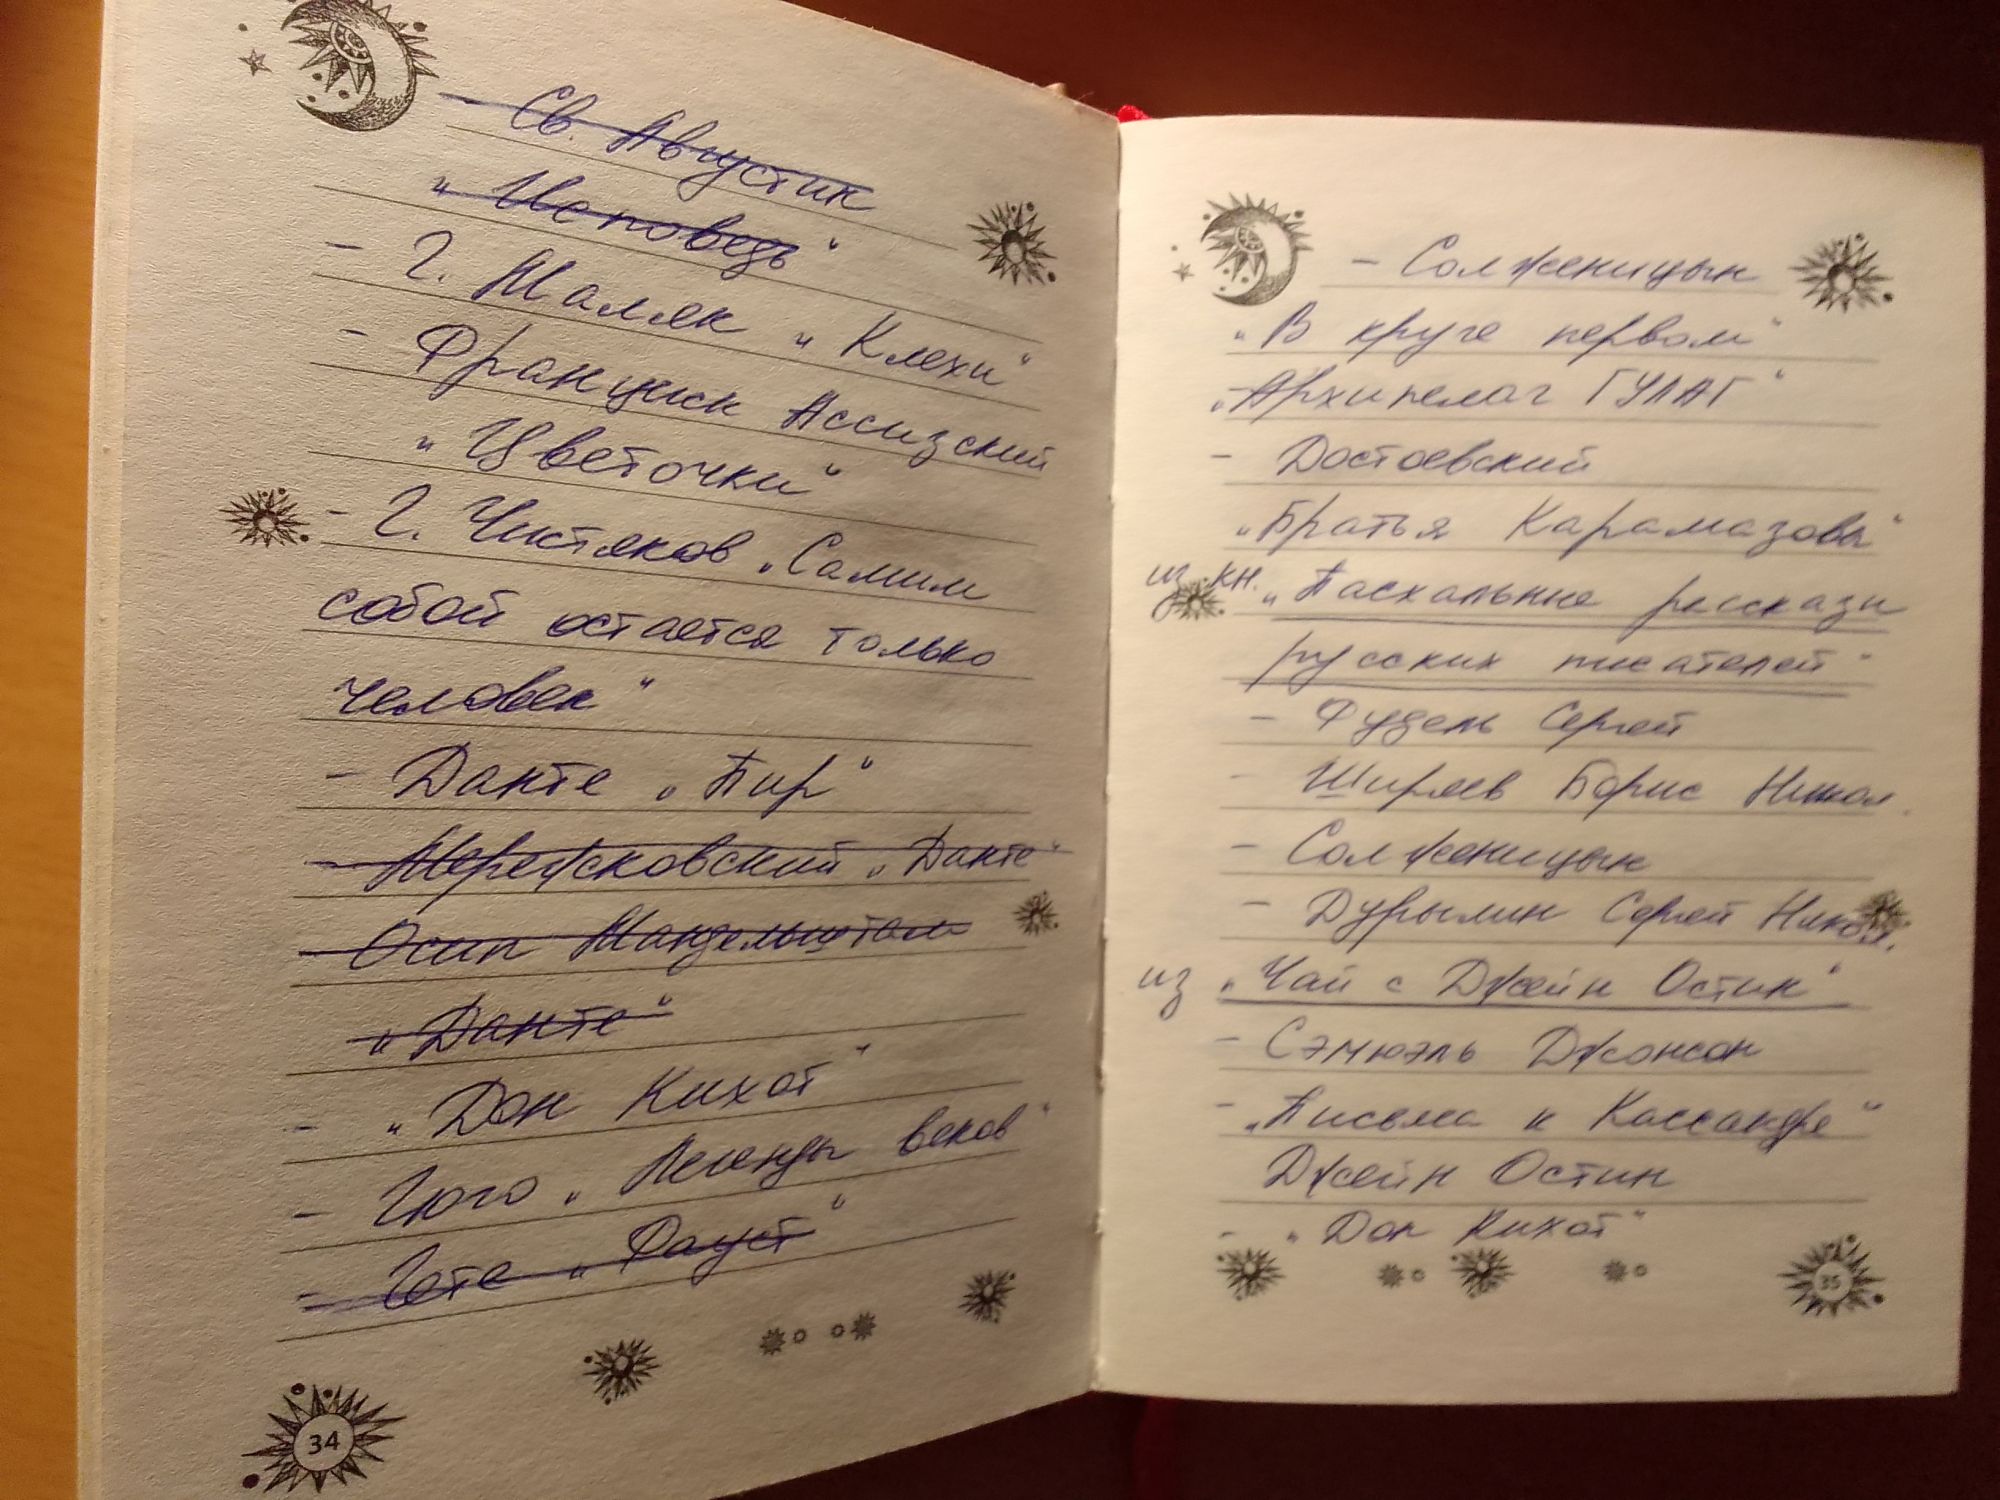 - Св. Августин
„Исповедь"
- Г. Маляк „Клехи"
- Франциск Ассизский
„Цветочки"
- Г. Чистяков „Самим
собой остается только
человек"
- Данте „Пир"
- Мережсковский „Данте"
Осип Мандельштам
„Данте"
- „Дон Кихот"
- Гюго „Легенды веков"
- Гете „Фауст"
34
- Солженицын
„В круге первом"
„Архипелаг ГУЛАГ"
- Достоевский
„Братья Карамазовы"
из кн. „Пасхальные рассказы
русских писателей"
- Фудель Сергей
- Ширяев Борис Никол.
- Солженицын
- Дурылин Сергей Никол.
из „Чай с Джейн Остин"
- Сэмюэль Джонсон
- „Письма к Кассандре"
Джейн Остин
- „Дон Кихот"
35